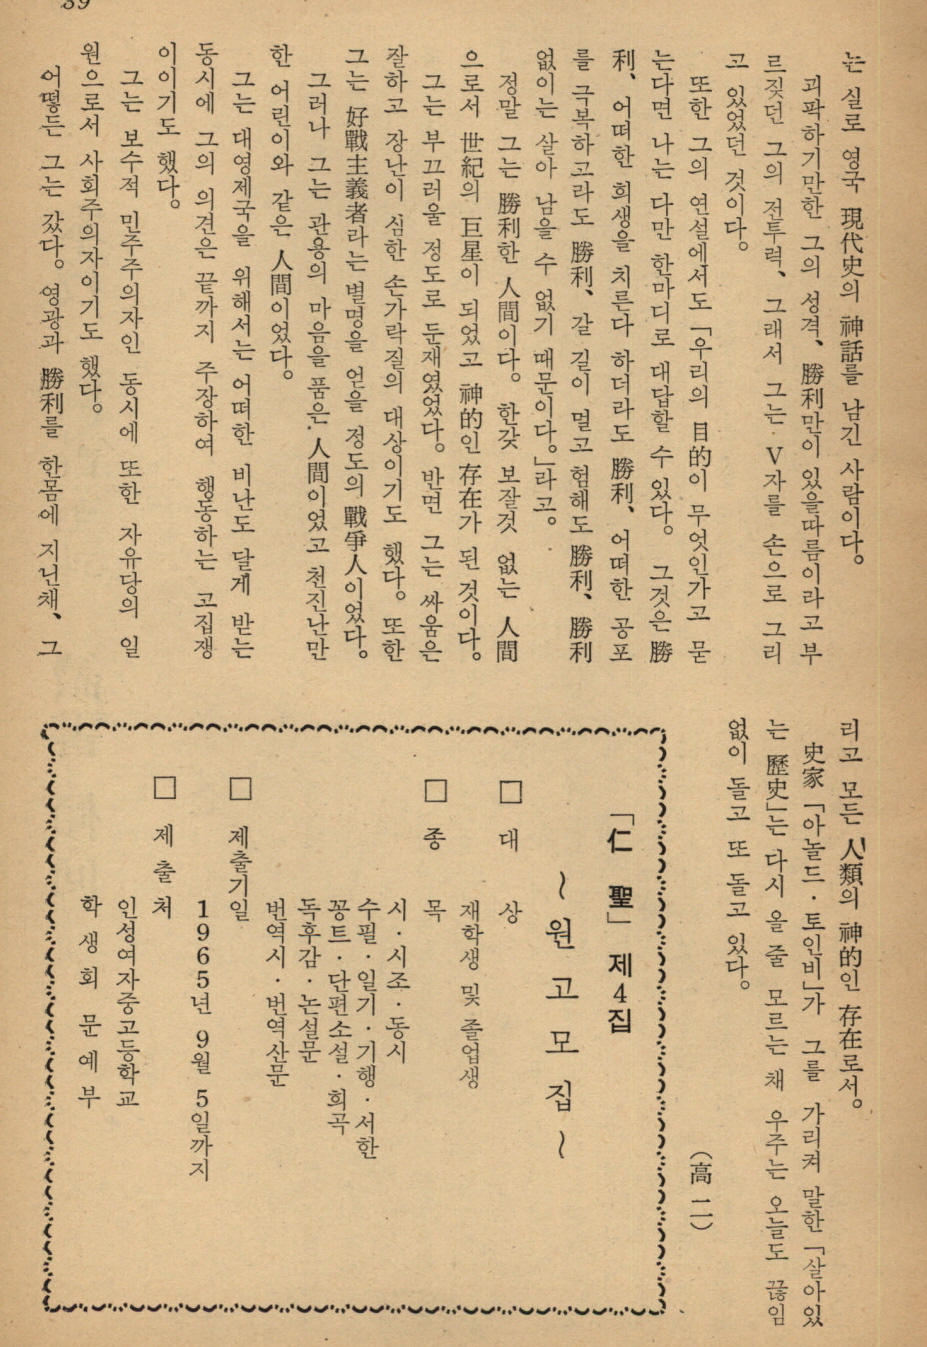 는 실로 영국 現代史의 神話를 남긴 사람이다。
괴팍하기만한 그의 성격、勝利만이 있을따름이라고 부
르짖던 그의 전투력、그래서 그는 V자를 손으로 그리
고 있었던 것이다。
또한 그의 연설에서도 「우리의 目的이 무엇인가고 묻
는다면 나는 다만 한마디로 대답할 수 있다。 그것은 勝
利、어떠한 희생을 치른다 하더라도 勝利、어떠한 공포
를 극복하고라도 勝利、갈 길이 멀고 험해도 勝利、勝利
없이는 살아 남을 수 없기 때문이다。」라고。
정말 그는 勝利한 人間이다。한갖 보잘것 없는 人間
으로서 世紀의 巨星이 되었고 神的인 存在가 된 것이다。
그는 부끄러울 정도로 둔재였었다。반면 그는 싸움은
잘하고 장난이 심한 손가락질의 대상이기도 했다。또한
그는 好戰主義者라는 별명을 얻을 정도의 戰爭人이었다。
그러나 그는 관용의 마음을 품은 人間이었고 천진난만
한 어린이와 같은 人間이었다。
그는 대영제국을 위해서는 어떠한 비난도 달게 받는
동시에 그의 의견은 끝까지 주장하여 행동하는 고집쟁
이이기도 했다。
그는 보수적 민주주의자인 동시에 또한 자유당의 일
원으로서 사회주의자이기도 했다。
어떻든 그는 갔다。영광과 勝利를 한몸에 지닌채、그
리고 모든 人類의 神的인 存在로서。
史家 「아놀드·토인비」가 그를 가리켜 말한 「살아있
는 歷史」는 다시 올 줄 모르는 채 우주는 오늘도 끊임
없이 돌고 또 돌고 있다。
(高 二)
「仁 聖」 제4집
~원고모집~
□ 대 상
재학생 및 졸업생
□ 종 목
시·시조·동시
수필·일기·기행·서한
꽁트·단편소설·희곡
독후감·논설문
번역시·번역산문
□ 제출기일
1965년 9월 5일까지
□ 제출처
인성여자중고등학교
학생회 문예부
39